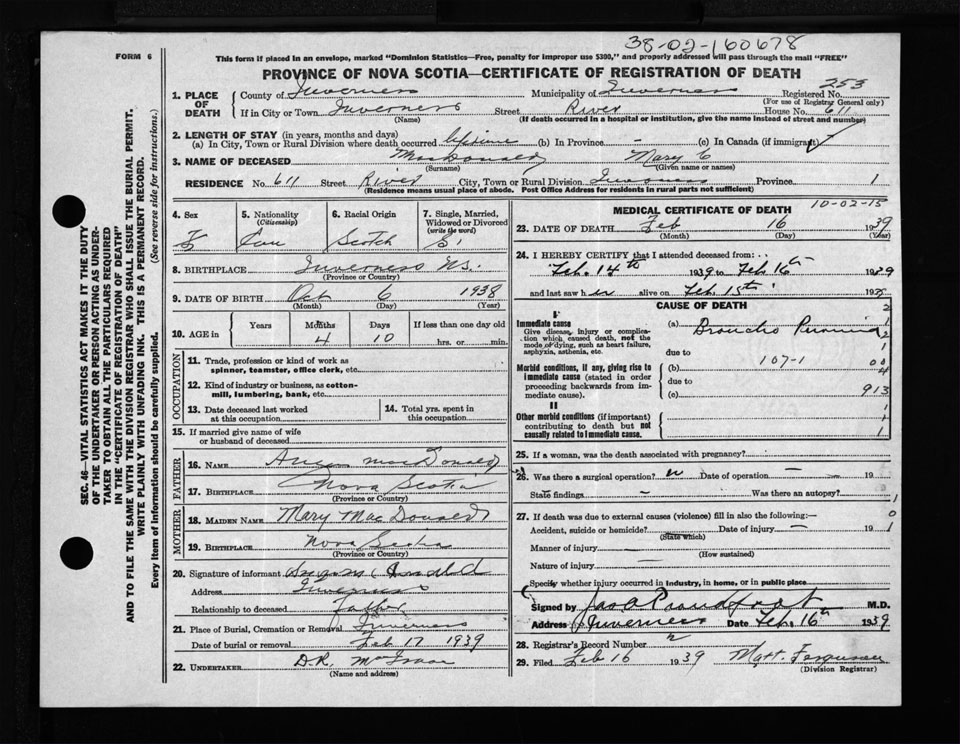 38-02-160678
FORM 6
This form if placed in an envelope, marked "Dominion Statistics—Free, penalty for improper use $300," and properly addressed will pass through the mail "FREE"
PROVINCE OF NOVA SCOTIA—CERTIFICATE OF REGISTRATION OF DEATH
253
1. PLACE OF DEATH
County of Inverness Municipality of Inverness Registered No.
(For use of Registrar General only)
If in City or Town Inverness Street River House No. 611
(Name) (If death occurred in a hospital or institution, give the name instead of street and number)
2. LENGTH OF STAY (in years, months and days)
(a) In City, Town or Rural Division where death occurred lifetime (b) In Province - (c) In Canada (if immigrant)
3. NAME OF DECEASED MacDonald Mary C
(Surname) (Given name or names)
RESIDENCE No. 611 Street River City, Town or Rural Division Inverness Province 1
(Residence means usual place of abode. Post Office Address for residents in rural parts not sufficient)
4. Sex F
5. Nationality (Citizenship) Can
6. Racial Origin Scotch
7. Single, Married, Widowed or Divorced (write the word) S
8. BIRTHPLACE Inverness N.S.
(Province or Country)
9. DATE OF BIRTH Oct 6 1938
(Month) (Day) (Year)
10. AGE in
Years Months Days If less than one day old
4 10 hrs. or min.
OCCUPATION
11. Trade, profession or kind of work as spinner, teamster, office clerk, etc.
12. Kind of industry or business, as cotton-mill, lumbering, bank, etc.
13. Date deceased last worked at this occupation
14. Total yrs. spent in this occupation
15. If married give name of wife or husband of deceased
FATHER
16. NAME Angus MacDonald
17. BIRTHPLACE Nova Scotia
(Province or Country)
MOTHER
18. MAIDEN NAME Mary MacDonald
19. BIRTHPLACE Nova Scotia
(Province or Country)
20. Signature of informant
Address Inverness
Relationship to deceased Father
21. Place of Burial, Cremation or Removal Inverness
Date of burial or removal Feb 17 1939
22. UNDERTAKER D.R. McIsaac
(Name and address)
MEDICAL CERTIFICATE OF DEATH 10-02-15
23. DATE OF DEATH Feb 16 1939
(Month) (Day) (Year)
24. I HEREBY CERTIFY that I attended deceased from:
Feb. 14th 1939 to Feb 16th 1939
and last saw her alive on Feb 15th 19
CAUSE OF DEATH
I
Immediate cause
Give disease, injury or complication which caused death, not the mode of dying, such as heart failure, asphyxia, asthenia, etc.
(a) Broncho Pneumonia
due to
Morbid conditions, if any, giving rise to immediate cause (stated in order proceeding backwards from immediate cause).
(b) 107-1
due to
(c) 913
II
Other morbid conditions (if important) contributing to death but not causally related to immediate cause.
25. If a woman, was the death associated with pregnancy?
26. Was there a surgical operation? n Date of operation - 19
State findings - Was there an autopsy?
27. If death was due to external causes (violence) fill in also the following:—
Accident, suicide or homicide? Date of injury - 19
(State which)
Manner of injury
(How sustained)
Nature of injury
Specify whether injury occurred in industry, in home, or in public place
Signed by Jas A Proudfoot M.D.
Address Inverness Date Feb. 16th 1939
28. Registrar's Record Number
29. Filed Feb 16 1939 Matt. Ferguson
(Division Registrar)
SEC. 46—VITAL STATISTICS ACT MAKES IT THE DUTY
OF THE UNDERTAKER OR PERSON ACTING AS UNDERTAKER
TO OBTAIN ALL THE PARTICULARS REQUIRED
IN THE "CERTIFICATE OF REGISTRATION OF DEATH"
AND TO FILE THE SAME WITH THE DIVISION REGISTRAR WHO SHALL ISSUE THE BURIAL PERMIT.
WRITE PLAINLY WITH UNFADING INK. THIS IS A PERMANENT RECORD.
Every item of information should be carefully supplied. (See reverse side for instructions.)